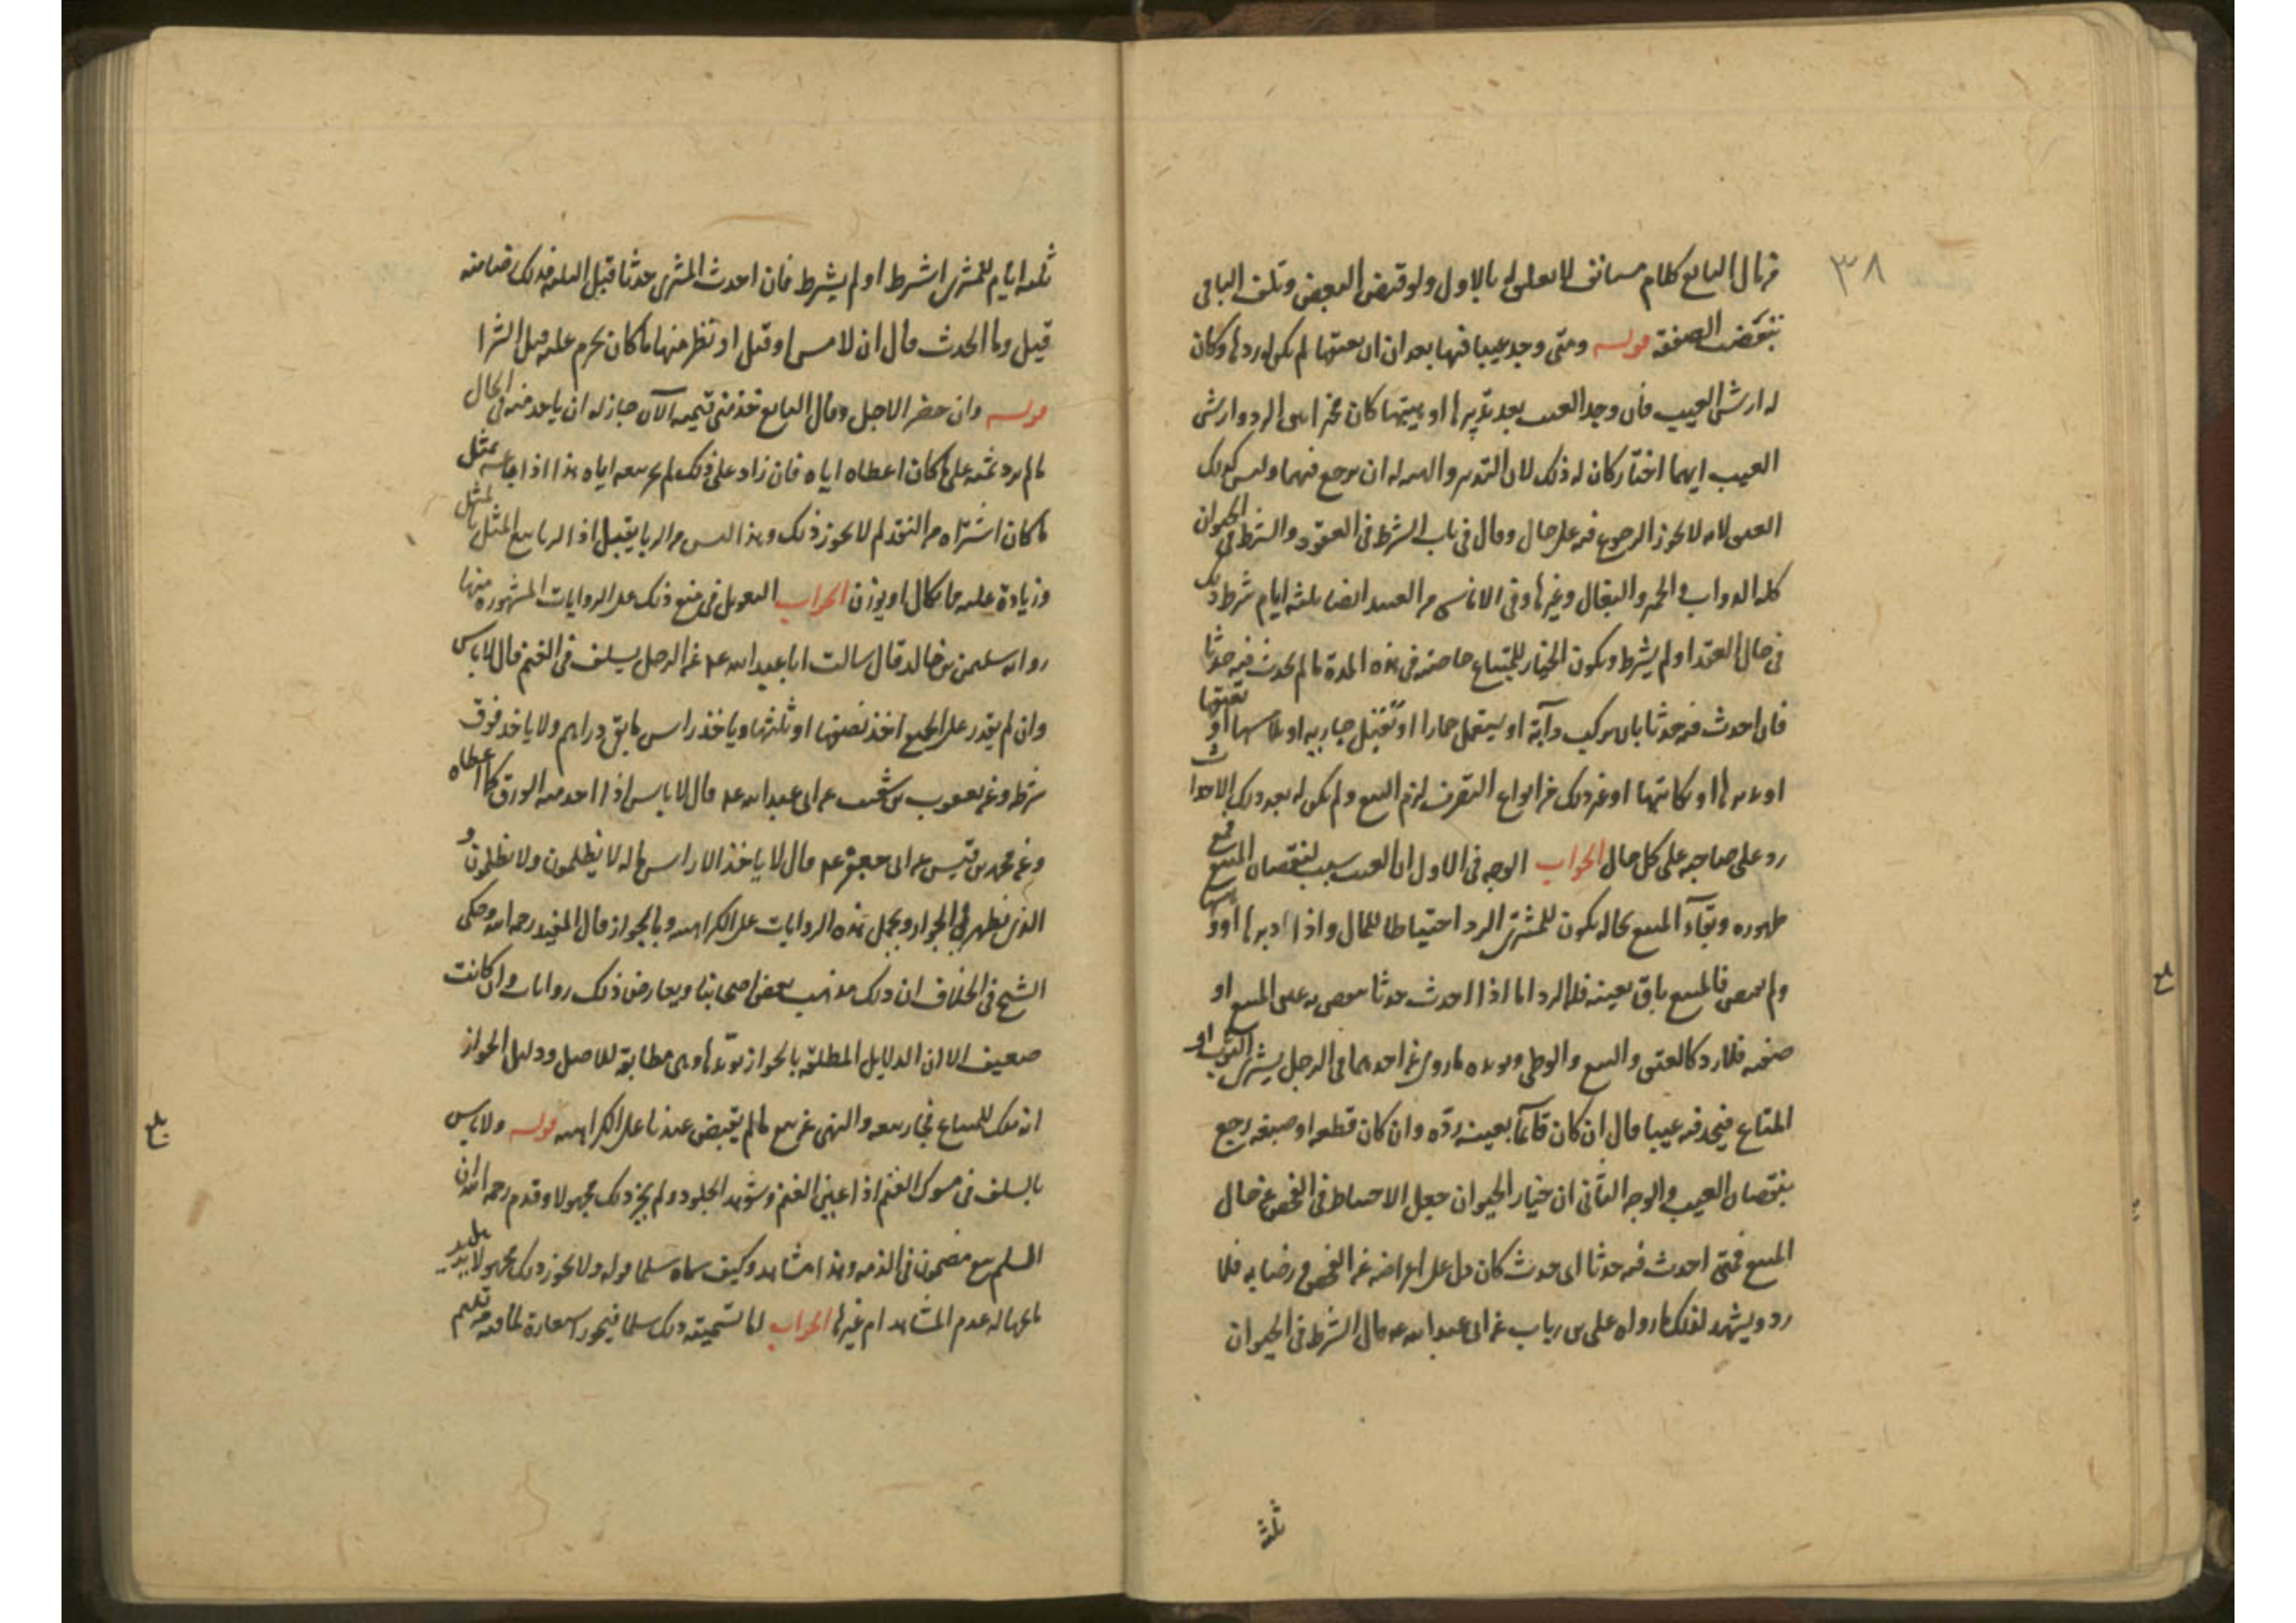 ٣٨
مال البايع كلام مستانف لا تعلق له بالاول ولو قبض البعض وتلف الباقي
تبعضت الصفقه قوله ومتى وجد عيبا فيها بعد ان يعتقها لم يكن له ردها وكان
له ارش العيب فان وجد العيب بعد تدبيرها او هبتها كان مخيرا بين الرد وارش
العيب ايهما اختار كان له ذلك لان التدبير والهبه له ان يرجع فيهما وليس كذلك
العتق لانه لا يجوز الرجوع فيه على حال وقال في باب الشرط في العقود والشرط في الحيوان
كله الدواب والحمير والبغال وغيرها وفي الاناسي من العبيد ايضا ثلثه ايام شرط ذلك
في حال العقد او لم يشرط ويكون الخيار للمبتاع خاصه في هذه المدة ما لم يحدث فيه حدثا
فان احدث فيه حدثا بان يركب دابة او يستعمل حمارا او يقبل جاريه او يلامسها او يعتقها
او يدبرها او يكاتبها او غير ذلك من انواع التصرف لزم البيع ولم يكن له بعد ذلك
رد على صاحبه على كل حال الجواب الوجه في الاول ان العيب سبب لنقصان المبيع فمع
ظهوره وبقآء المبيع بحاله يكون للمشتري الرد احتياطا للمال واذا ادبرها او وهبها
ولم يمض فالمبيع باق بعينه فله الرد اما اذا احدث حدثا ينقص به عين المبيع او
صفته فلا رد كالعتق والبيع والوطي ويؤيده ما روي عن احدهما في الرجل يشتري الثوب او
المتاع فيجد فيه عيبا قال ان كان قآئما بعينه ردّه وان كان قطعه او صبغه رجع
بنقصان العيب والوجه الثاني ان خيار الحيوان جعل للاحتياط في الفحص عن حال
المبيع فمتى احدث فيه حدثا اي حدث كان دل على اعراضه عن الفحص ورضا به فلا
رد ويشهد لذلك ما رواه علي بن رياب عن ابي عبد الله قال الشرط في الحيوان
ثلثه
ثلثه ايام للمشتري اشترط او لم يشترط فان احدث المشتري حدثا قبل الثلثه فذلك رضا منه
قيل وما الحدث قال ان لامس او قبل او نظر منها ما كان يحرم عليه قبل الشرا
قوله وان حضر الاجل وقال البايع خذ مني قيمه الآن جاز له ان ياخذ منه في الحال
ما لم يزد ثمنه على ما كان اعطاه اياه فان زاد على ذلك لم يجز بيعه اياه هذا اذا باعه بمثل
ما كان اشتراه من النقد لم لا يجوز ذلك وهذا ليس من الربا بقبيل اذ الربا بيع المثل بالمثل
وزيادة عليه مما يكال او يوزن الجواب التعويل في منع ذلك على الروايات المشهوره منها
روايه سليمن بن خالد قال سالت ابا عبد الله عن الرجل يسلف في الغنم قال لا باس
وان لم يقدر على الجميع اخذ نصفها او ثلثها وياخذ راس ما بقي دراهم ولا ياخذ فوق
شرطه وعن يعقوب بن شعيب عن ابي عبد الله قال لا باس اذا اخذ منه الورق كما اعطاه
وعن محمد بن قيس عن ابي جعفر قال لا ياخذ الا راس ماله لا يظلمون ولا يظلمون و
الذي يظهر لي الجواز ويحمل هذه الروايات على الكراهيه وبالجواز قال المفيد رحمه الله وحكى
الشيخ في الخلاف ان ذلك مذهب بعض اصحابنا ويعارض ذلك روايات وان كانت
ضعيفه الا ان الدلايل المطلقه بالجواز تؤيدها وهي مطابقة للاصل ودليل الجواز
انه ملك للمبتاع فجاز بيعه والنهي عن بيع ما لم يقبض عندنا على الكراهيه قوله ولا باس
بالسلف في مسوك الغنم اذا عين الغنم وشوهد الجلود ولم يجز ذلك مجهولا وقدم رحمه الله ان
السلم بيع مضمون في الذمه وهذا مشاهد وكيف سماه سلما قوله ولا يجوز ذلك مجهولا
عدم المشاهده ام غيرها الجواب اما تسميته ذلك سلما فيجوز استعارة لما فيه من تقديم